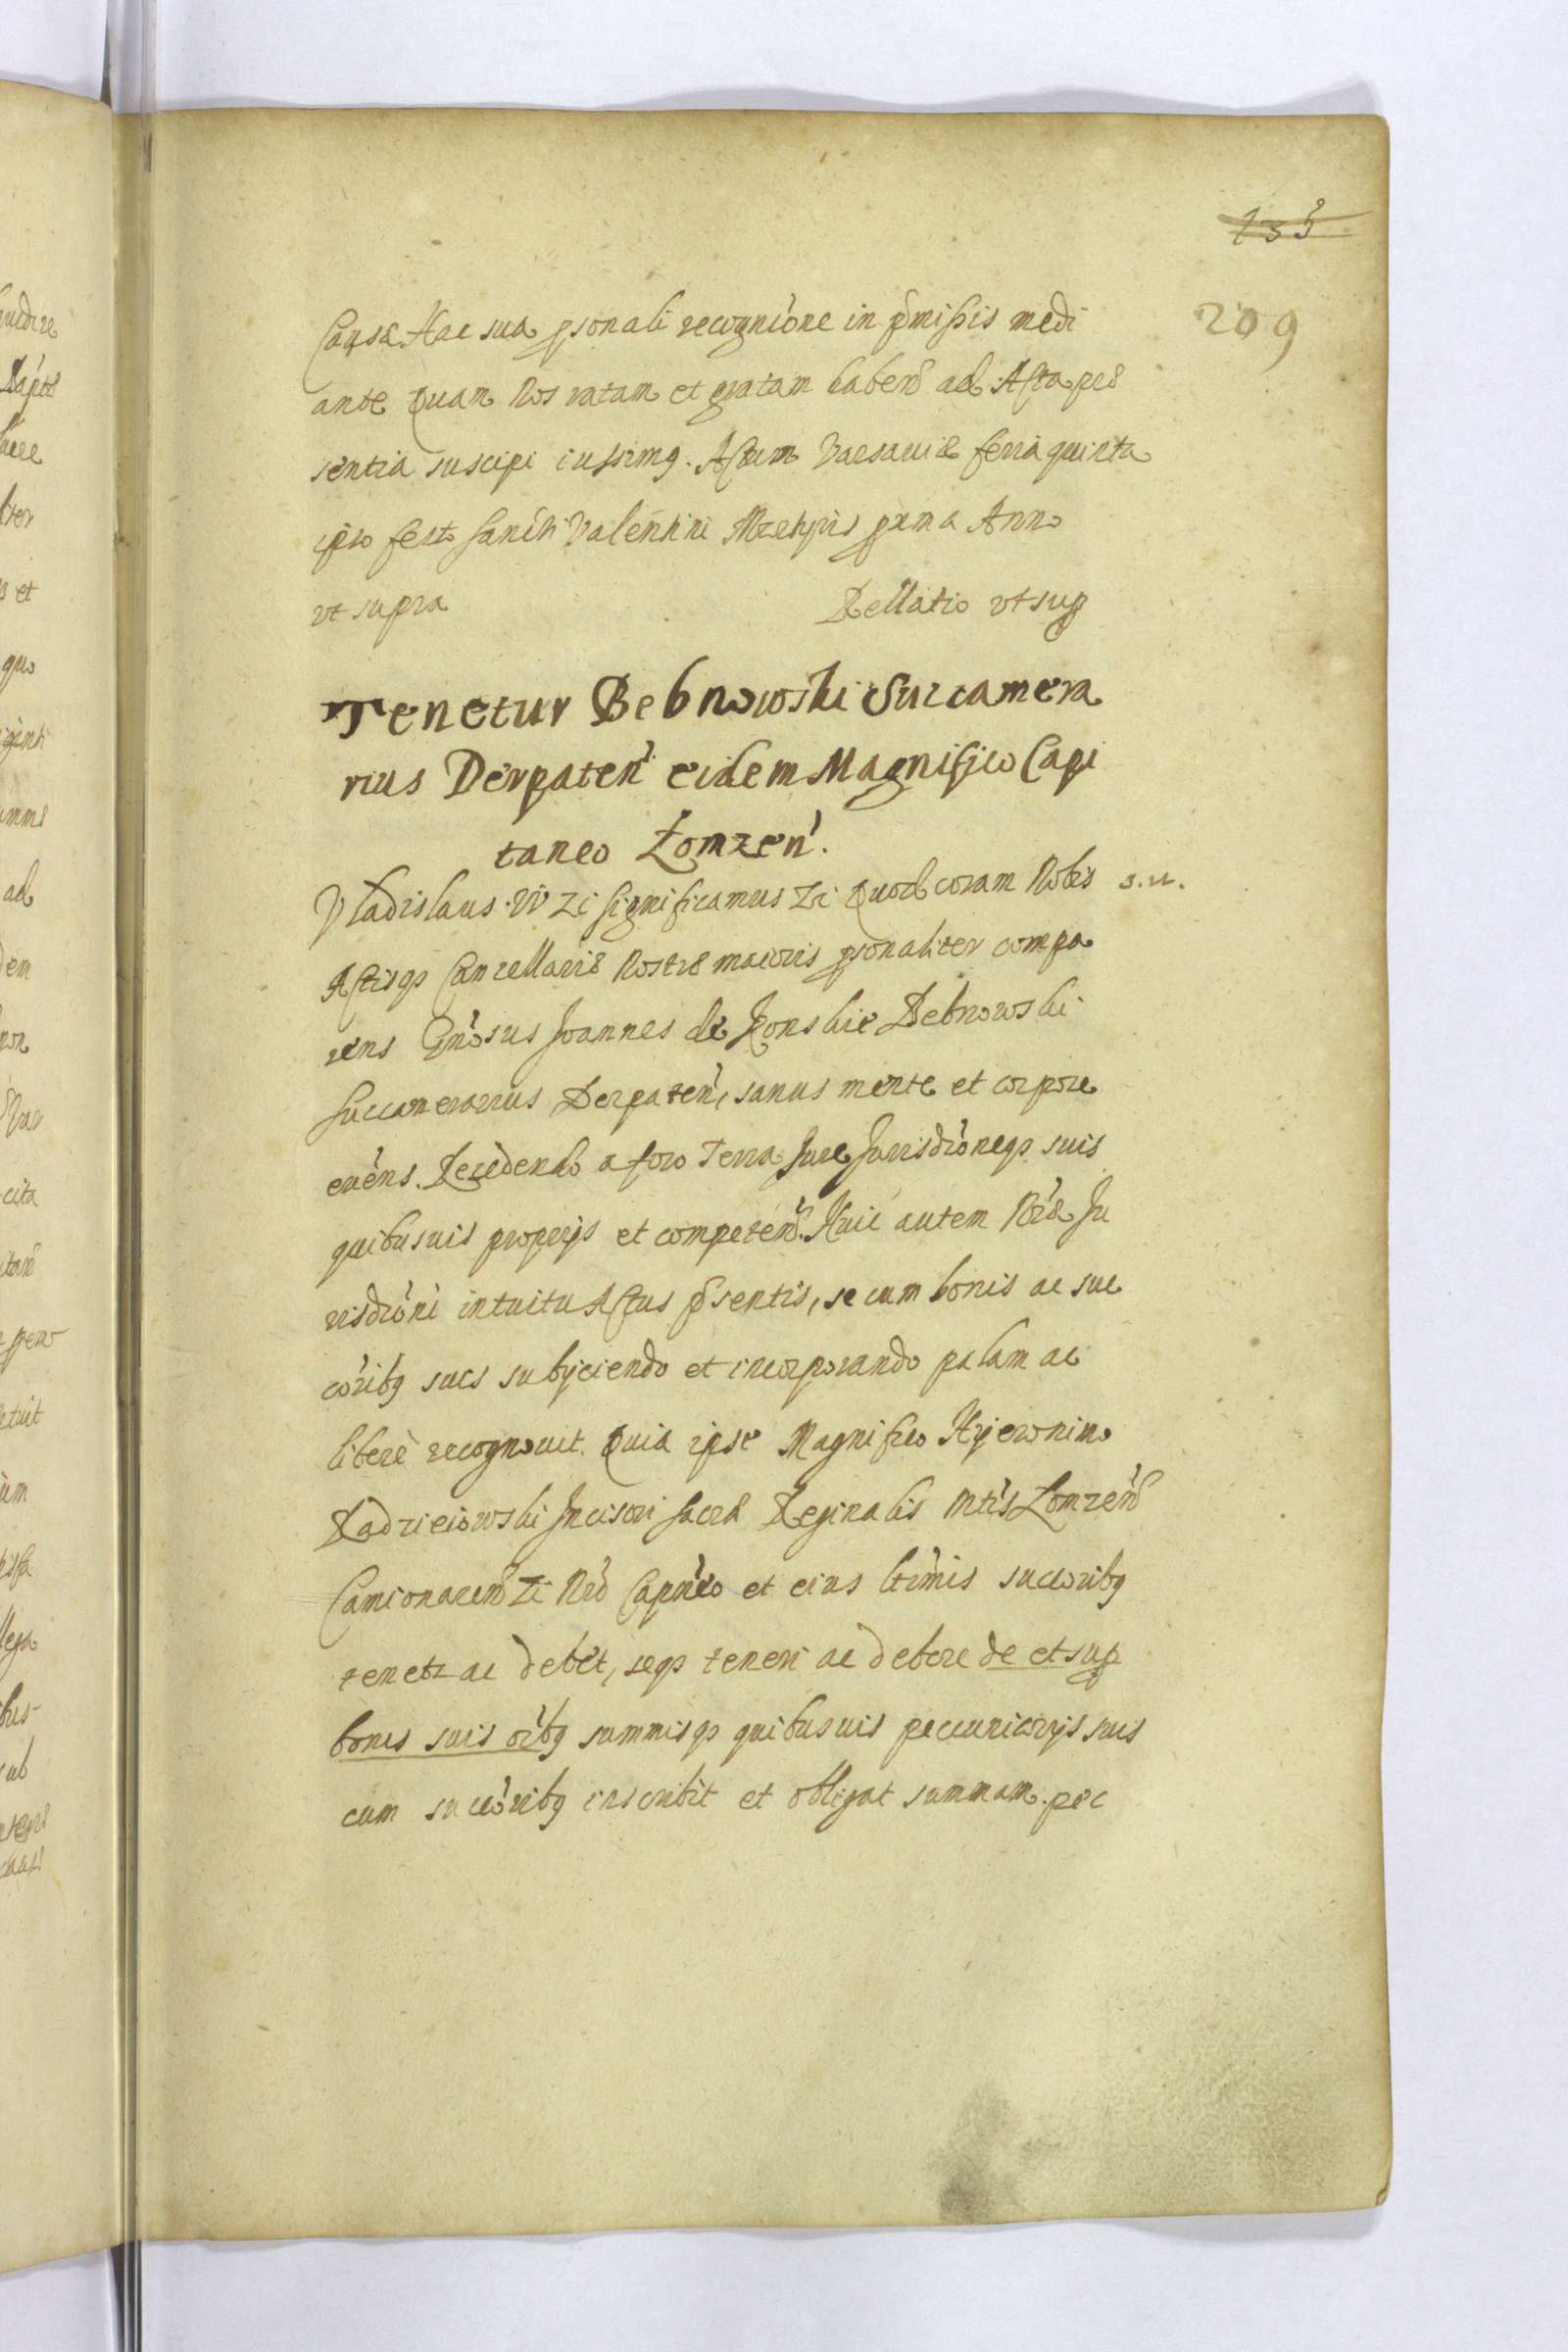 233
209
Causa Hac sua psonali recognióne in pmissis medi
ante Quam Nos ratam et gratam haben ad Acta prę
sentia suscipi iussimq. Actum Varsauię feria quinta
ipso festo Sancti Valentini Mrtyris pxma Anno
vt supra Rellatio vt sup
Tenetur Debnowski Succamera
rius Derpaten eidem Magnifico Capi
taneo Łomzen.
Vladislaus IV Zc significamus Zc Quod coram Nobis s.u.
Actisqz Cancellarię Nostrę maioris psonaliter compa
rens Gnosus Joannes de Konskie Debnowski
Succamerarius Derpaten, sanus mente et corpore
exñens. Recedendo a foro Terra Jure Jurisdioneqz suis
quibusuis proprijs et competen. Huic autem Nrę Ju
risdioni intuitu Actus psentis, se cum bonis ac suc
coribq suis subijciendo et incorporando palam ac
liberè recognouit. Quia ipse Magnifico Hyeronimo
Radzieiowski Incisori Sacrę Reginalis Mtis Lomzen
Camionacen Zc Nro Capneo et eius ltimis succoribq
tenetz ac debet, seqz teneri ac debere de et sup
bonis suis oibq summisqz quibusuis pecuniarijs suis
cum succoribq inscribit et obligat summam pec